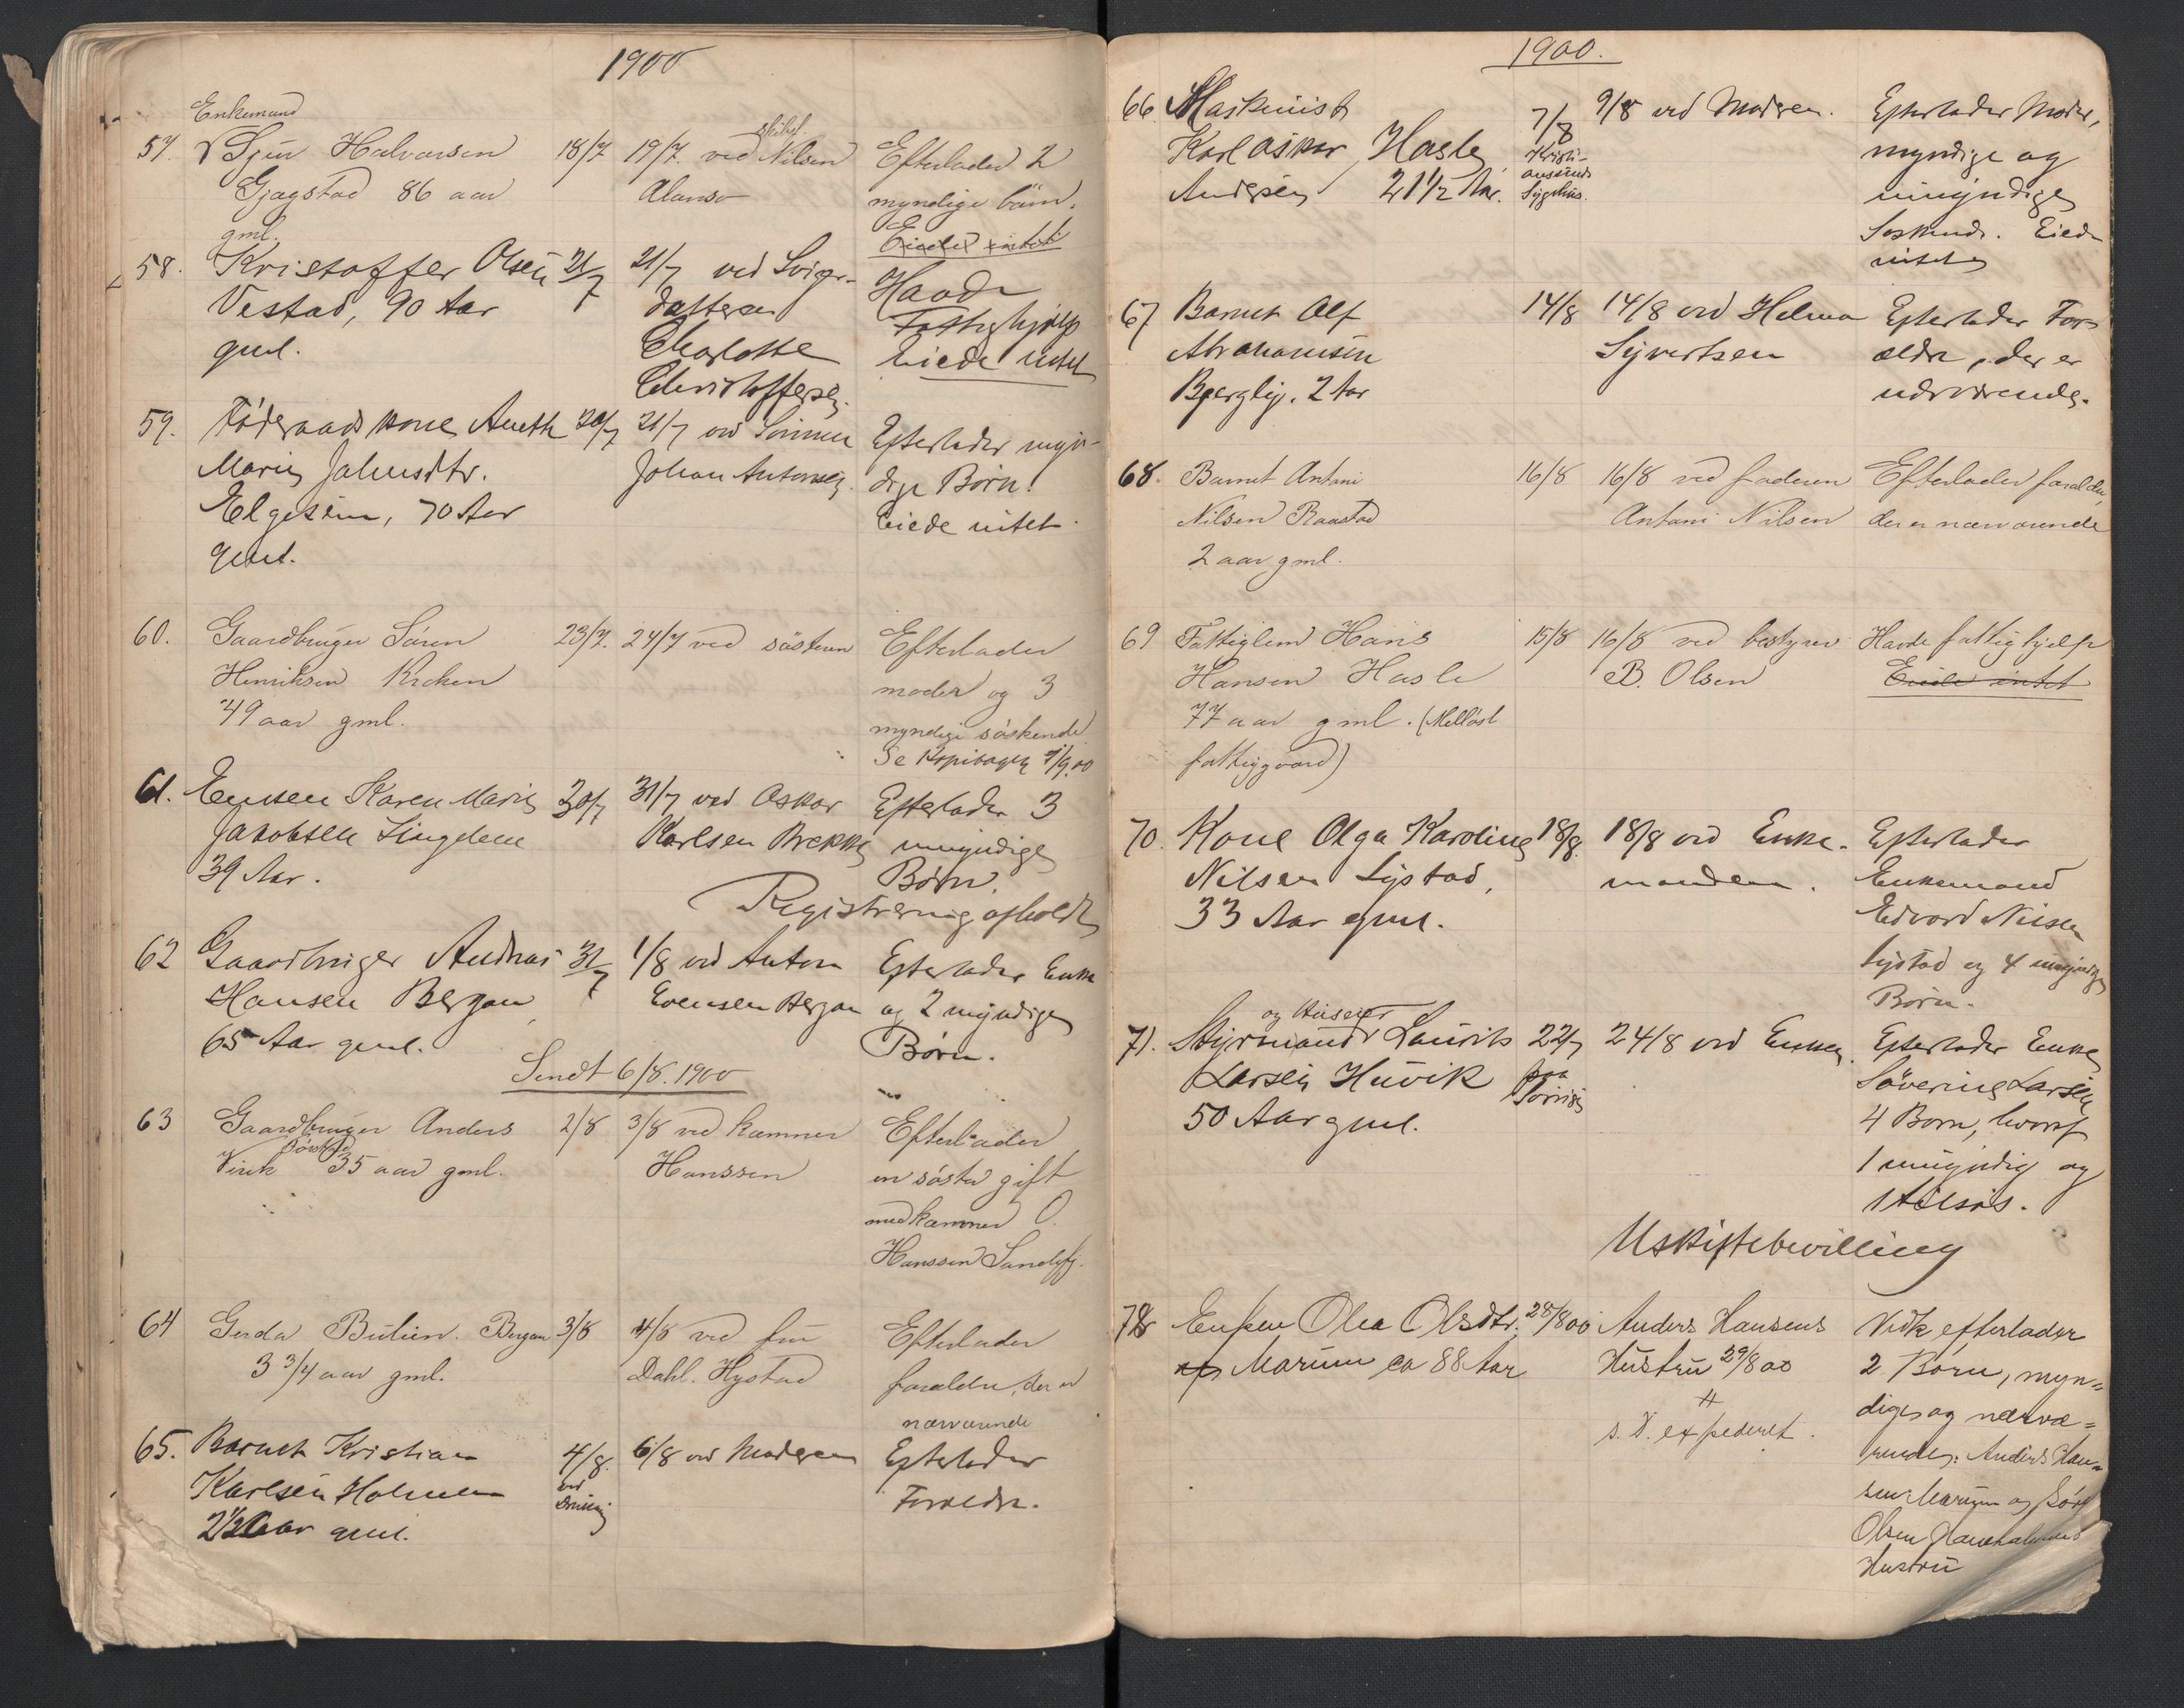 1900
Enkemand
57. Sjur Halvorsen 18/7 19/7. ved skibsf. Nilsen Efterlader 2
Gjogstad 86 aar Alansø myndige børn.
gml. Eiede intet
58. Kristoffer Olsen 21/7 21/7 ved Sviger- Havde
Vestad, 90 Aar datteren Fattighjælp
gml. Charlotte Eiede intet
Christoffersen.
59. Føderaadskone Anette 20/7 21/7 ved Sønnen Efterlader myn-
Marie Jahnsdtr. Johan Antonsen. dige Børn.
Elgesem, 70 Aar Eiede intet.
gml.
60. Gaardbruger Søren 23/7. 24/7 ved søsteren Efterlader
Henriksen Kroken moder og 3
49 aar gml. myndige søskende
Se Kopibogen 7/9.00
61. Enken Karen Marie 30/7 31/7 ved Oskar Efterlader 3
Jakobsen Lingelem Karlsen Brekke umyndige
39 Aar. Børn.
Registrering afholdt
62 Gaardbruger Andreas 31/7 1/8 ved Anton Efterlader Enke
Hansen Bergan, Evensen Bergan og 2 myndige
65 Aar gml. Børn.
Sendt 6/8.1900
63 Gaardbruger Anders 2/8 3/8 ved kæmner Efterlader
Virik 35 aar gml. Hanssen en søster gift
med kæmner O.
Hanssen Sandefj.
64 Gerda Bulien. Bergan 3/8 4/8 ved fru Efterlader
3 3/4 aar gml. Dahl. Hystad forældre, der er
nærværende
65. Barnet Kristian 4/8. 6/8 ved Moderen Efterlader
Karlsen Holmen ved Forældre.
2 1/2 Aar gml. Drukning
1900.
66. Maskinist 7/8 9/8 ved Moderen. Efterlader Moder,
Karl Oskar Hasle, Kristi- myndige og
Andersen 21 1/2 Aar. ansands umyndige
Sygehus. Søskende. Eiede
intet
67 Barnet Alf 14/8 14/8 ved Helma Efterlader For-
Abrahamsen Syvertsen ældre, der er
Bjergly. 2 Aar nærværende.
68. Barnet Antoni 16/8 16/8 ved faderen Efterlader forældre,
Nilsen Raastad Antoni Nilsen der er nærværende
2 aar gml.
69 Fattiglem Hans 15/8 16/8 ved bestyrer Havde fattighjelp
Hansen Hasle B. Olsen Eiede intet
77 aar gml. (Melløst
fattiggaard)
70. Kone Olga Karoline 18/8. 18/8 ved Enke- Efterlader
Nilsen Lystad, manden. Enkemand
33 Aar gml. Edvard Nilsen
Lystad og 4 umyndige
Børn.
og Huseier
71. Styrmand Lauritz 22/7 24/8 ved Enken. Efterlader Enke
Larsen Huvik paa Søverine Larsen
50 Aar gml. 4 Børn, hvoraf
1 umyndig og
Uskiftebevilling
72 Enken Olea Olsdtr. 28/8 00 Anders Hansens Vidk efterlader
af Marum ca 88 Aar Hustru 29/8 00 2 Børn, myn=
s. D. expederet. dige og nærvæ=
rende: Anders Han=
sen Marum og
Olsen
Hustru